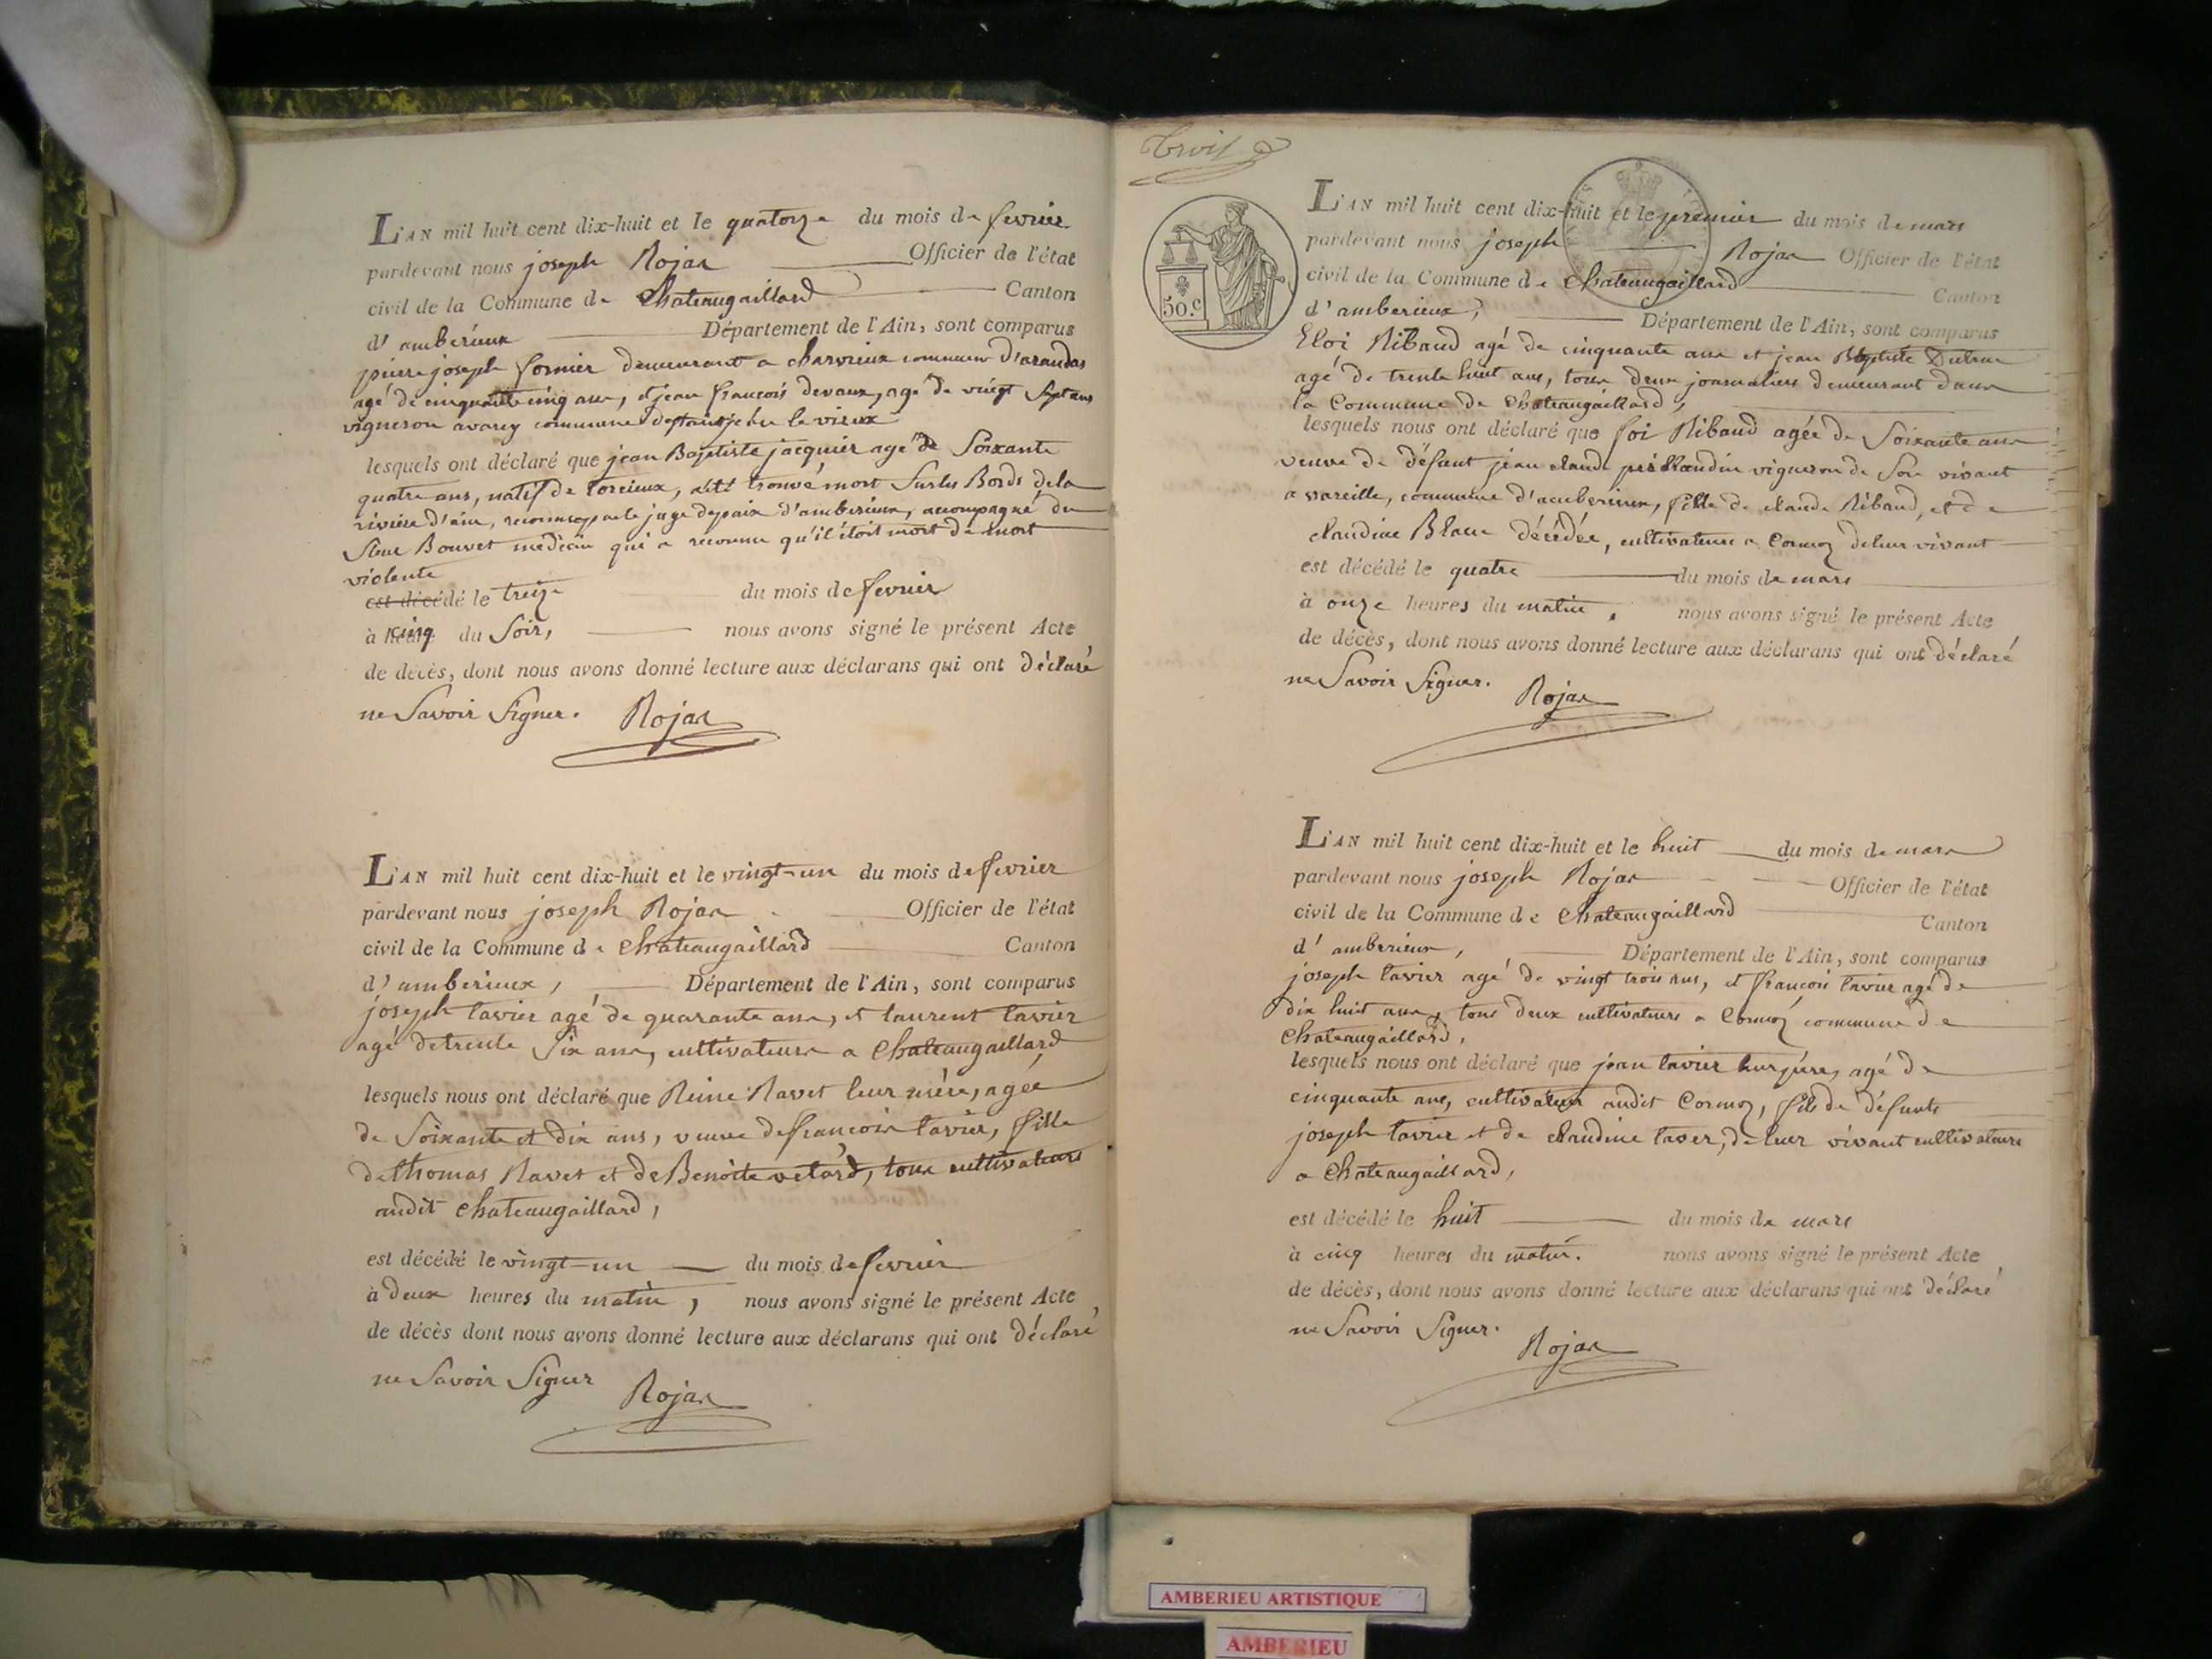 L'AN mil huit cent dix-huit et le quatorze du mois de fevrier
pardevant nous joseph Rojas Officier de l'état
civil de la Commune de Chateaugaillard Canton
d'amberieux Département de l'Ain, sont comparus
pierre joseph fornier demeurant a charvieux commune d'arandas
agé de cinquante cinq ans, et jean françois devaux, agé de vingt Sept ans
vigneron a varey commune de St jean le vieux
lesquels ont déclaré que jean Baptiste jacquier agé de Soixante
quatre ans, natif de torcieux, a été trouvé mort Sur les Bords de la
rivière d'ain, reconnu par le juge de paix d'amberieux, accompagné du
Sieur Bouvet medecin qui a reconnu qu'il étoit mort de mort
violente
est décédé le treize du mois de fevrier
à cinq du Soir, nous avons signé le présent Acte
de décès, dont nous avons donné lecture aux déclarans qui ont déclaré
ne Savoir Signer. Rojas
L'AN mil huit cent dix-huit et le vingt-un du mois de fevrier
pardevant nous joseph Rojas Officier de l'état
civil de la Commune de Chateaugaillard Canton
d'amberieux, Département de l'Ain, sont comparus
joseph tavier agé de quarante ans, et laurent tavier
agé de trente Six ans, cultivateurs a Chateaugaillard
lesquels nous ont déclaré que Reine Ravet leur mère, agée
de Soixante et dix ans, veuve de françois tavier, fille
de thomas Ravet et de Benoite velard, tous cultivateurs
audit chateaugaillard,
est décédé le vingt-un du mois de fevrier
à deux heures du matin, nous avons signé le présent Acte
de décès dont nous avons donné lecture aux déclarans qui ont déclaré
ne Savoir Signer Rojas
trois
50.c
L'AN mil huit cent dix-huit et le premier du mois de mars
pardevant nous joseph Rojas Officier de l'état
civil de la Commune de Chateaugaillard Canton
d'amberieux, Département de l'Ain, sont comparus
Eloi Ribaud agé de cinquante ans et jean Baptiste
agé de trente huit ans, tous deux journaliers demeurant dans
la Commune de Chateaugaillard,
lesquels nous ont déclaré que foi Ribaud agée de Soixante ans
veuve de défunt jean claude vigneron de Son vivant
a vareille, commune d'amberieux, fille de claude Ribaud, et de
claudine Blanc décédée, cultivateurs a Cormoz de leur vivant
est décédé le quatre du mois de mars
à onze heures du matin, nous avons signé le présent Acte
de décès, dont nous avons donné lecture aux déclarans qui ont déclaré
ne Savoir Signer. Rojas
L'AN mil huit cent dix-huit et le huit du mois de mars
pardevant nous joseph Rojas Officier de l'état
civil de la Commune de Chateaugaillard Canton
d'amberieux, Département de l'Ain, sont comparus
joseph tavier agé de vingt trois ans, et françois tavier agé de
dix huit ans, tous deux cultivateurs a Cormoz commune de
Chateaugaillard,
lesquels nous ont déclaré que jean tavier leur père, agé de
cinquante ans, cultivateur audit Cormoz, fils de défunts
joseph tavier et de claudine taver, de leur vivant cultivateurs
a Chateaugaillard,
est décédé le huit du mois de mars
à cinq heures du matin. nous avons signé le présent Acte
de décès, dont nous avons donné lecture aux déclarans qui ont déclaré
ne Savoir Signer. Rojas
AMBERIEU ARTISTIQUE
AMBERIEU